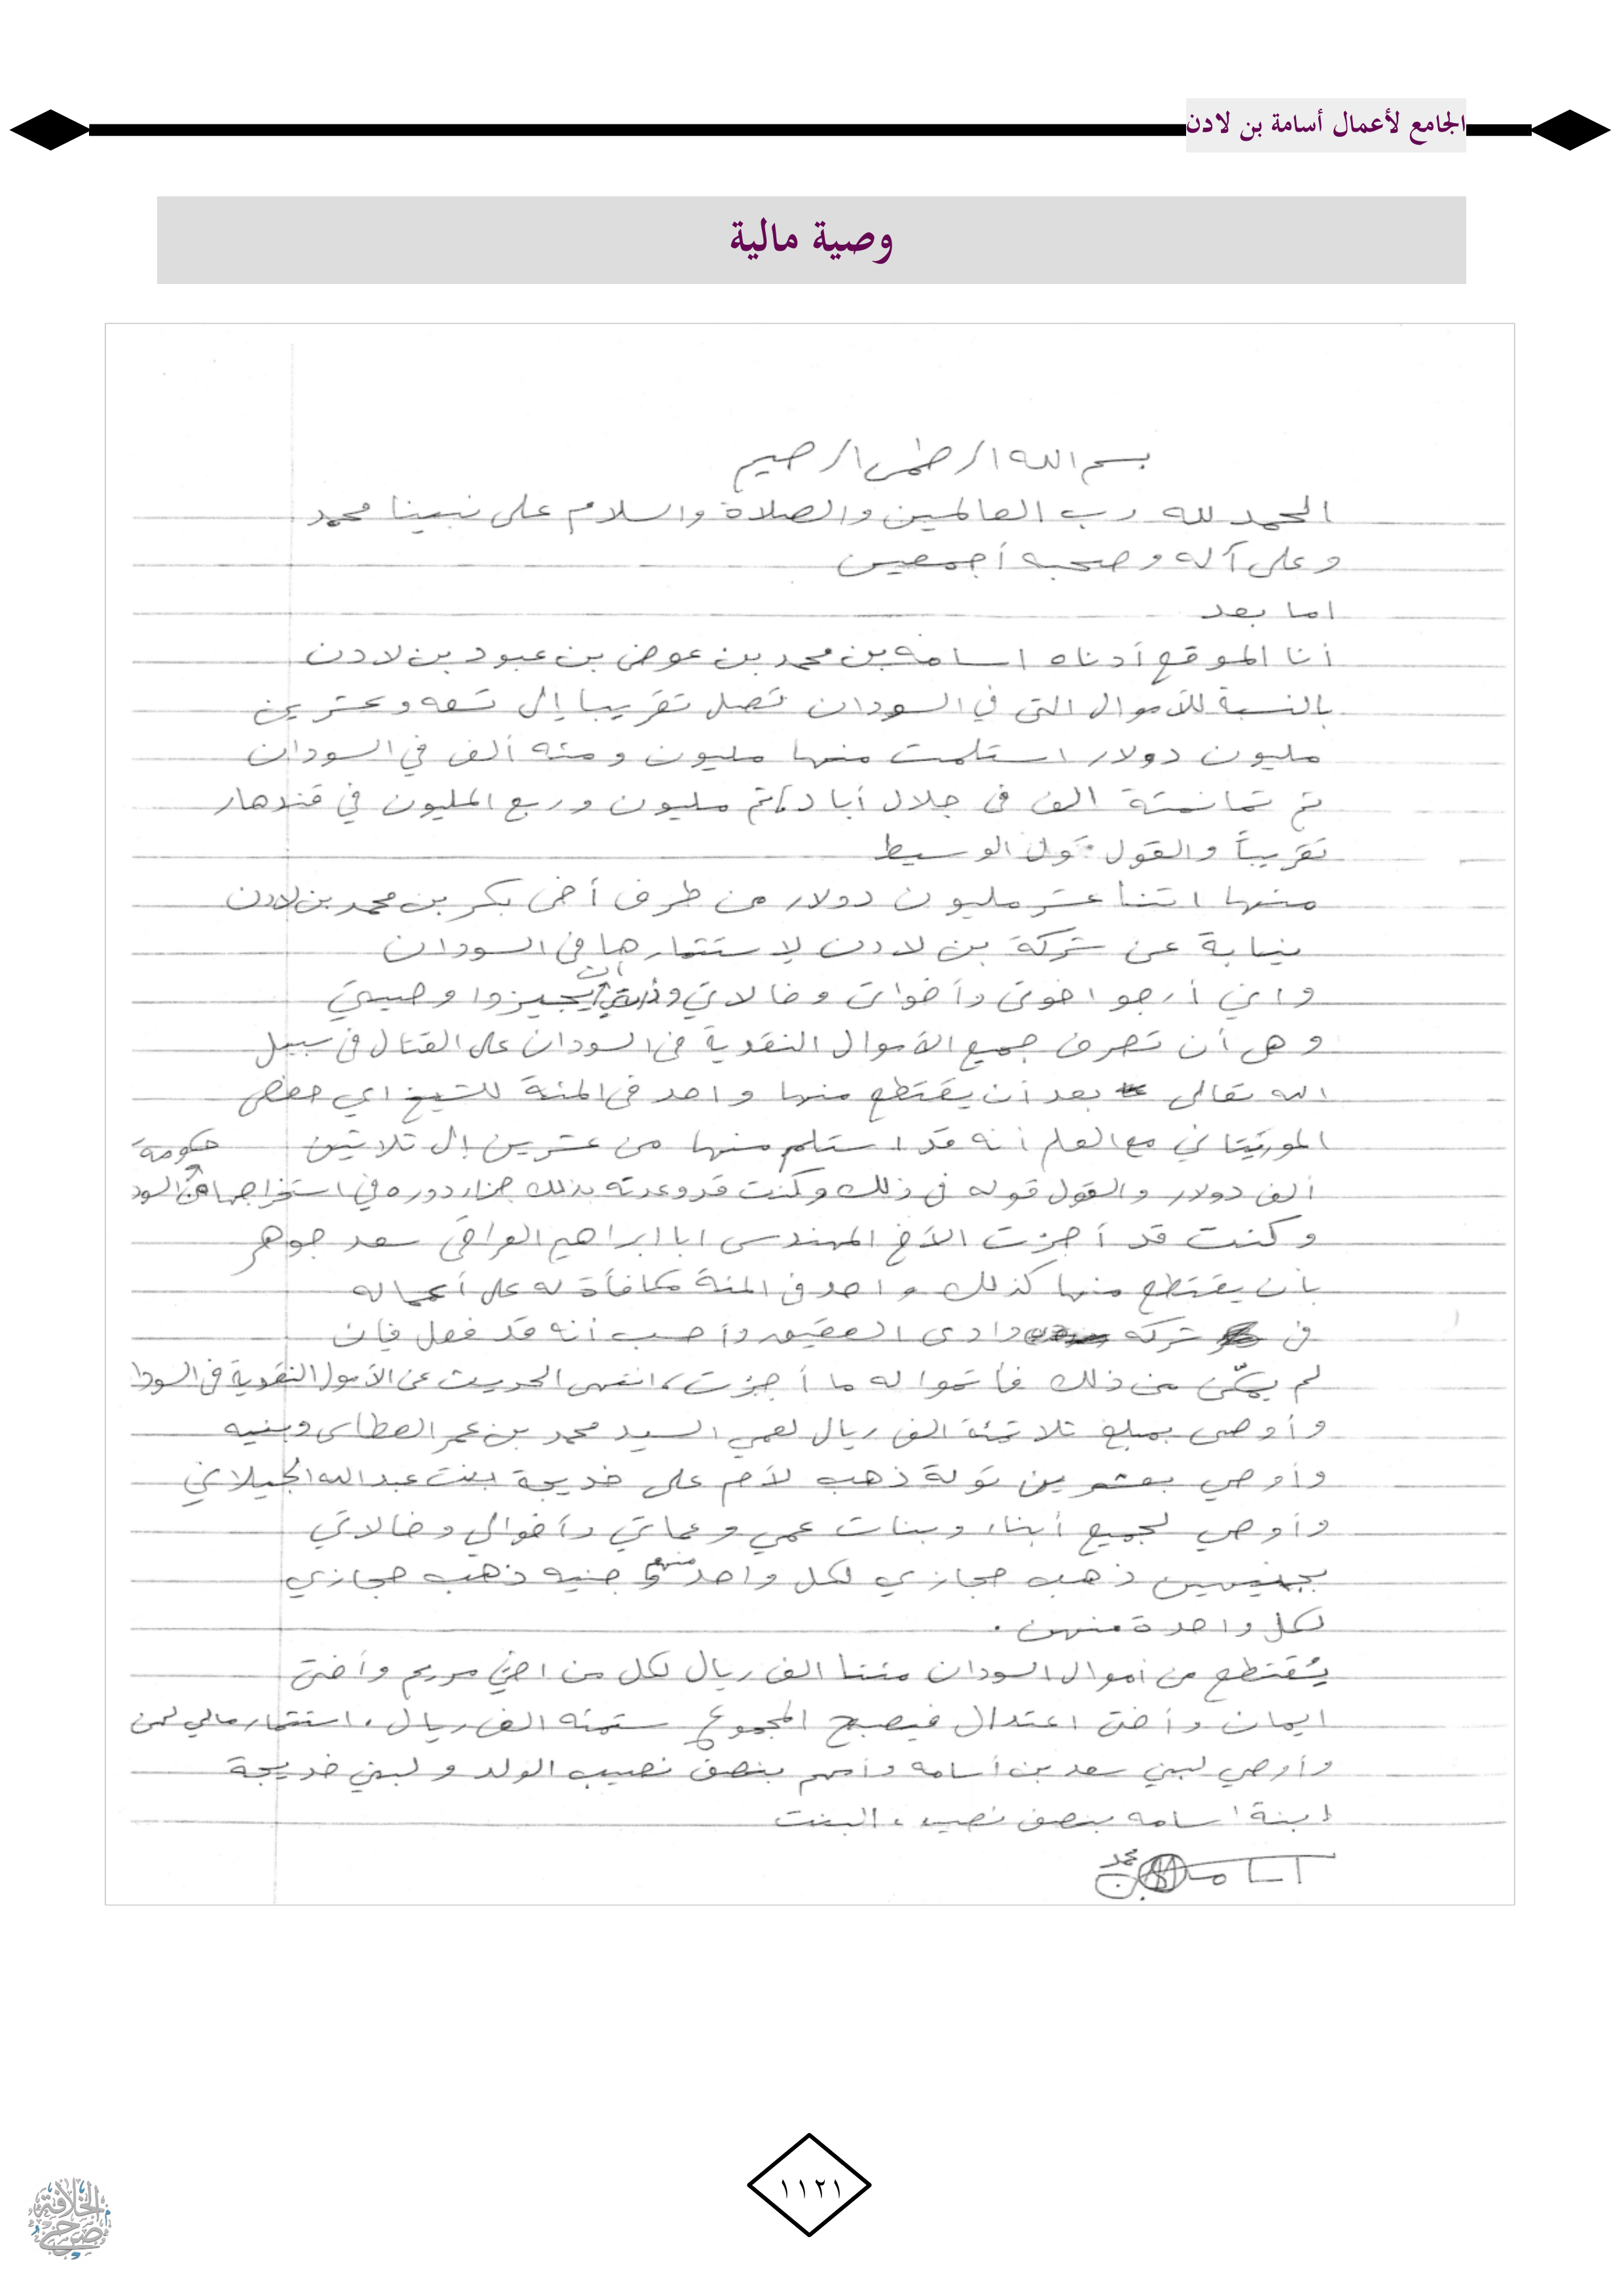 الجامع لأعمال أسامة بن لادن
وصية مالية
بسم الله الرحمن الرحيم
الحمد لله رب العالمين والصلاة والسلام على نبينا محمد
وعلى آله وصحبه أجمعين
اما بعد
أنا الموقع أدناه اسامه بن محمد بن عوض بن عبود بن لادن
بالنسبة للأموال التي في السودان تصل تقريبا إلى تسعه وعشرين
مليون دولار استلمت منها مليون ومئه ألف في السودان
ثم ثمانمئة الف في جلال أباد ثم مليون وربع المليون في قندهار
تقريباً والقول قول الوسيط
منها اثنا عشر مليون دولار من طرف أخي بكر بن محمد بن لادن
نيابة عن شركة بن لادن لاستثمارها في السودان
واني أرجو اخوتي وأخواتي وخالاتي أن يجيزوا وصيتي
وهي أن تصرف جميع الأموال النقدية في السودان على القتال في سبيل
الله تعالى بعد أن يقتطع منها واحد في المئة للشيخ ابي حفص
الموريتاني مع العلم أنه قد استلم منها من عشرين إلى ثلاثين
ألف دولار والقول قوله في ذلك وكنت قد وعدته بذلك جزاء دوره في استخراجها من حكومة السود
وكنت قد أجزت الأخ المهندس ابا ابراهيم العراقي سعد جوهر
بأن يقتطع منها كذلك واحد في المئة مكافأة له على أعماله
في شركه وادي العقيق وأحسب أنه قد فعل فإن
لم يتمكن من ذلك فأتموا له ما أجزت، انتهى الحديث عن الأموال النقدية في السودا
وأوصي بمبلغ ثلاثمئة الف ريال لعمي السيد محمد بن عمر العطاس وبنيه
وأوصي بعشرين تولة ذهب لأم علي خديجة بنت عبدالله الجيلاني
وأوصي لجميع أبناء وبنات عمي وعماتي وأخوالي وخالاتي
بجنيهين ذهب حجازي لكل واحد منهم و جنيه ذهب حجازي
لكل واحدة منهن.
يُقتطع من أموال السودان مئتا الف ريال لكل من اختي مريم وأختي
ايمان وأختي اعتدال فيصبح المجموع ستمئه الف ريال، استثمار مالي لهن
وأوصي لبني سعد بن أسامه وأمهم بنصف نصيب الولد ولبني خديجة
ابنة اسامه بنصف نصيب البنت
اسامه بن محمد
١١٢١